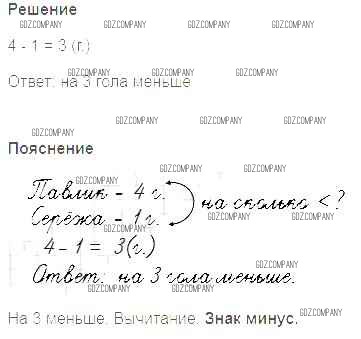 Решение
GDZCOMPANY GDZCOMPANY GDZCOMPANY
4 - 1 = 3 (г.)
GDZCOMPANY GDZCOMPANY GDZCOMPANY
Ответ: на 3 гола меньше
GDZCOMPANY GDZCOMPANY GDZCOMPANY
GDZCOMPANY
Пояснение
GDZCOMPANY GDZCOMPANY
GDZCOMPANY
Павлик - 4 г.
на сколько < ?
Серёжа - 1 г.
GDZCOMPANY GDZCOMPANY
GDZCOMPANY
4 - 1 = 3 (г.)
GDZCOMPANY
Ответ: на 3 гола меньше.
GDZCOMPANY GDZCOMPANY
На 3 меньше. Вычитание. Знак минус.
GDZCOMPANY